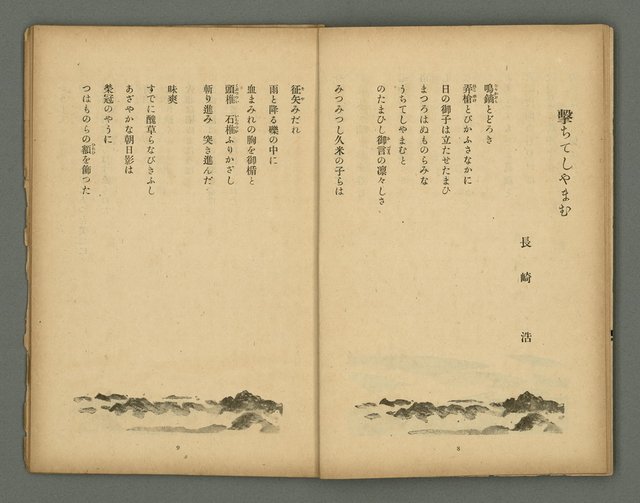 擊ちてしやまむ
長崎浩
鳴鏑とどろき
弄槍とびかふさなかに
日の御子は立たせたまひ
まつろはぬものらみな
うちてしやまむと
のたまひし御言の凛々しさ
みつみつし久米の子らは
8
征矢みだれ
雨と降る礫の中に
血まみれの胸を御楯と
頭椎 石椎ふりかざし
斬り進み 突き進んだ
味爽
すでに醜草らなびきふし
あざやかな朝日影は
榮冠のやうに
つはものらの額を飾つた
9